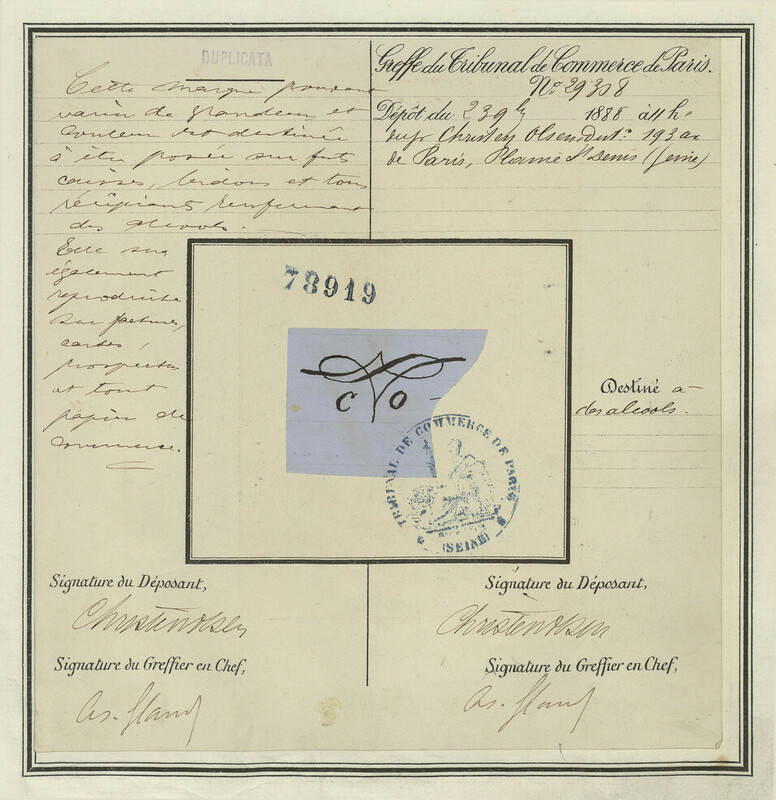 DUPLICATA
Cette marque pouvant
varier de grandeur et
couleur est destinée
à être posée sur fûts
caisses, bidons et tous
récipients renfermant
des alcools.
Elle sera
également
reproduite
sur factures,
cartes,
prospectus
et tout
papier de
commerce.
Greffe du Tribunal de Commerce de Paris.
No 29308
Dépôt du 2 1888 à 11 h
Christen Olsen 193 av
de Paris, Plaine St Denis (Seine)
78919
C O
TRIBUNAL DE COMMERCE DE PARIS
(SEINE)
Destiné à
des alcools.
Signature du Déposant,
Christen Olsen
Signature du Greffier en Chef,
Signature du Déposant,
Christen Olsen
Signature du Greffier en Chef,